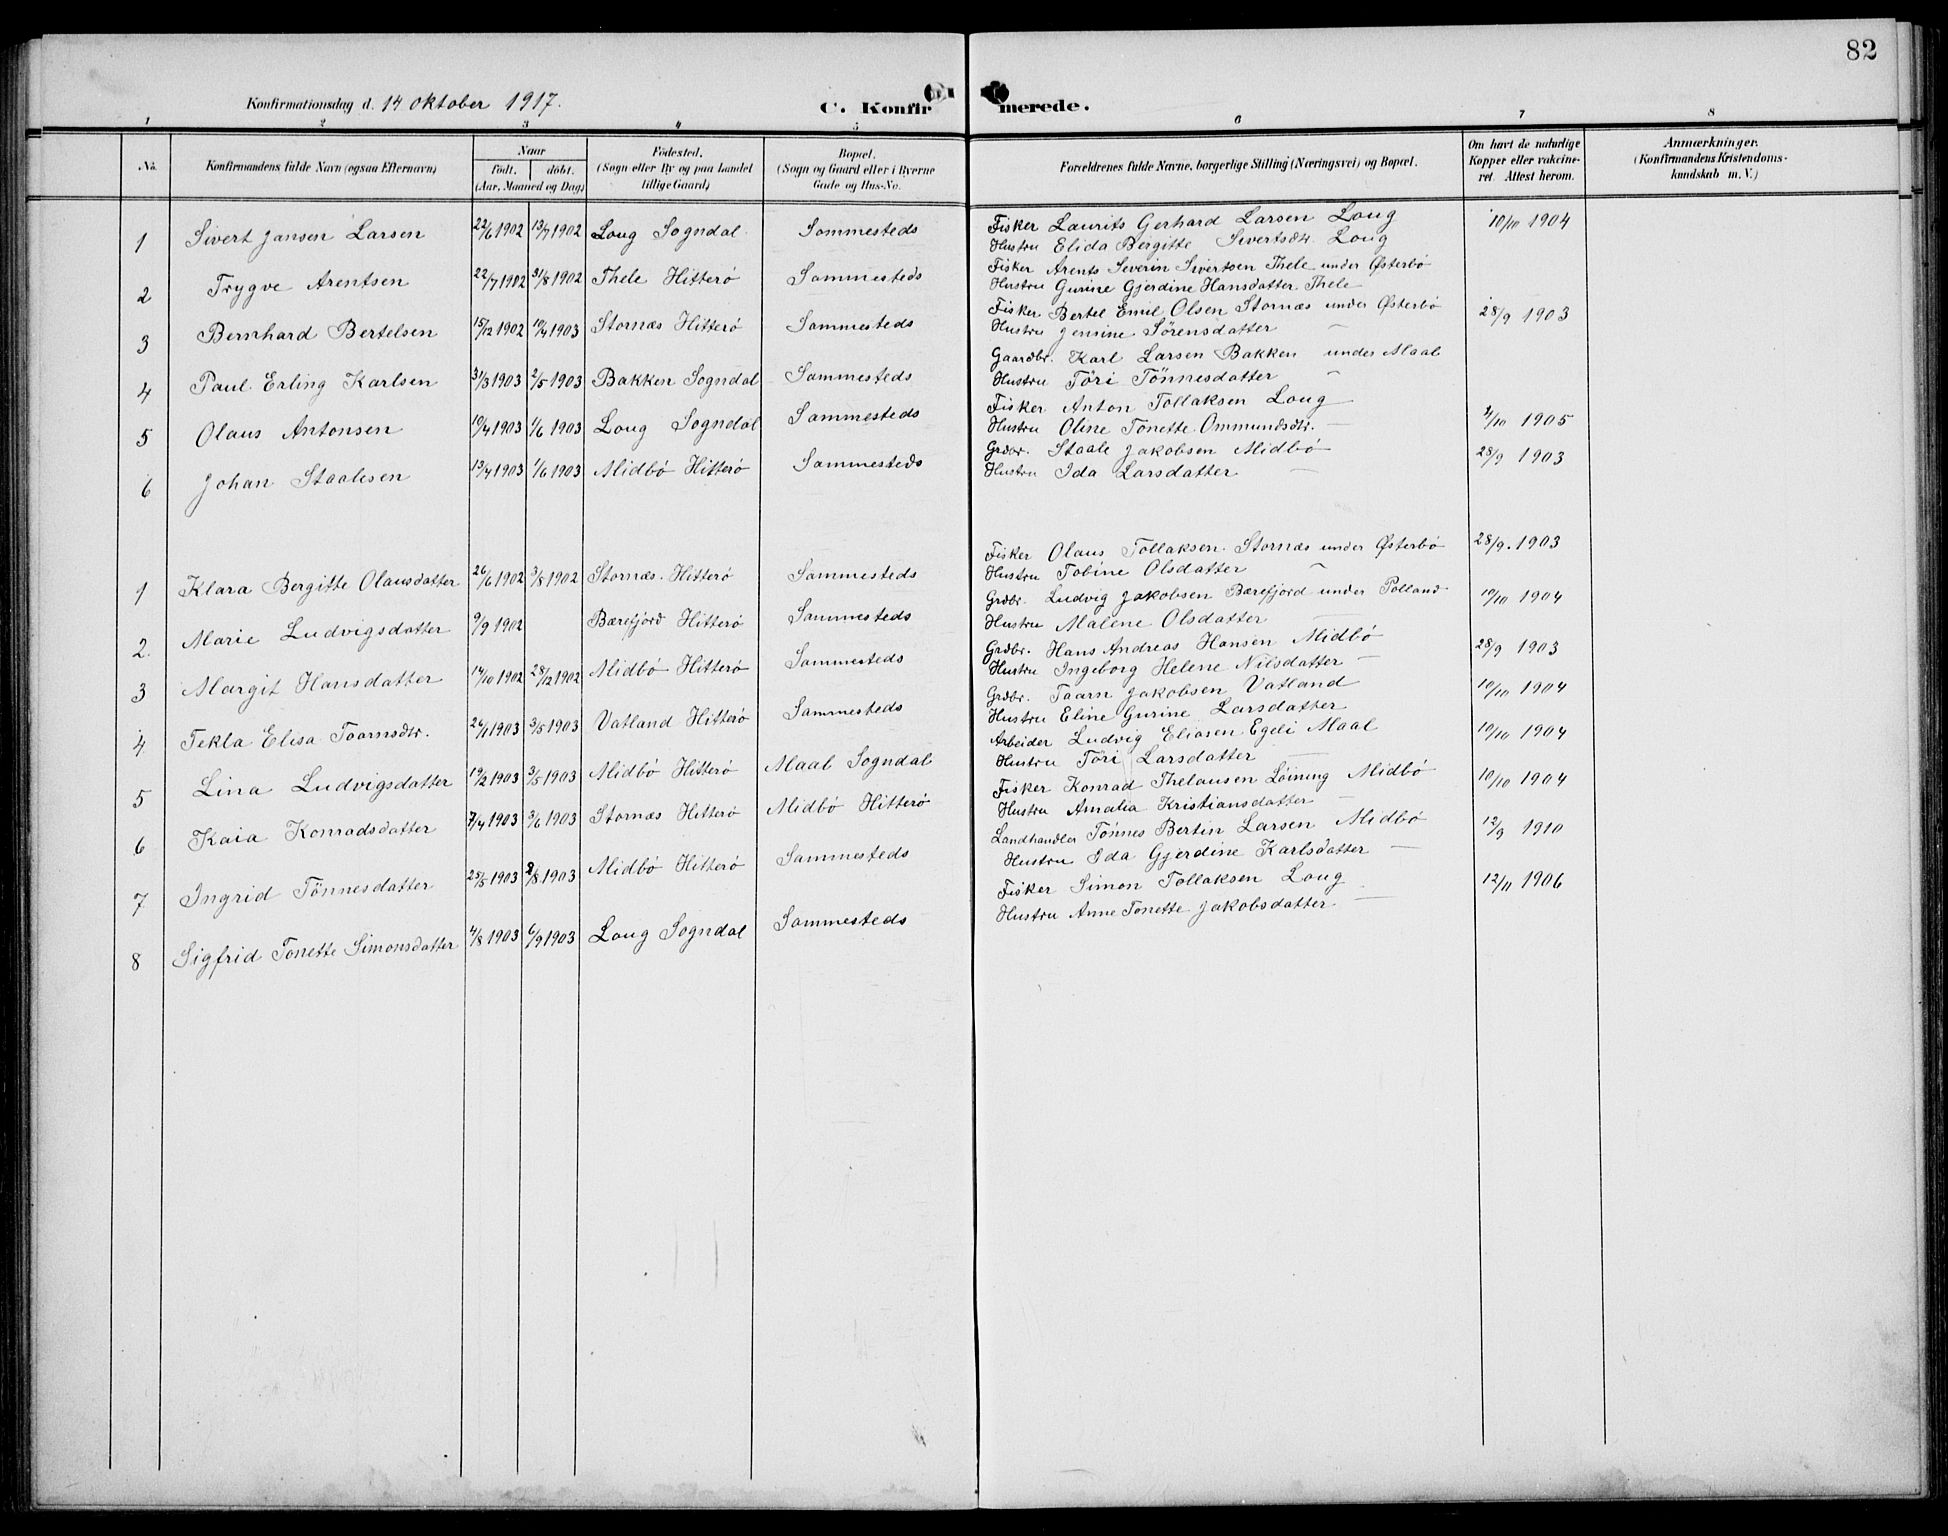 82
Konfirmationsdag d. 14 Oktober 1917.
C. Konfirmerede.
1 2 3 4 5 6 7 8
No. Konfirmandens fulde Navn (ogsaa Efternavn) Naar født. døbt. (Aar, Maaned og Dag) Fødested. (Sogn eller By og paa Landet tillige Gaard) Bopæl. (Sogn og Gaard eller i Byerne Gade og Hus-No. Forældrenes fulde Navne, borgerlige Stilling (Næringsvei) og Bopæl. Om havt de naturlige Kopper eller vakcineret. Attest herom. Anmærkninger. (Konfirmandens Kristendomskundskab m. V.)
1 Sivert Jansen Larsen 22/6 1902 13/7 1902 Loug Sogndal Sammesteds Fisker Laurits Gerhard Larsen Loug 10/10 1904
Hustru Elida Bergitte Sivertsdtr. Loug
2 Trygve Arentsen 22/7 1902 31/8 1902 Thele Hitterö Sammesteds Fisker Arents Severin Sivertsen Thele under Østerbö
Hustru Gurine Gjerdine Hansdatter Thele
3 Bernhard Bertelsen 15/12 1902 10/4 1903 Stornæs Hitterö Sammesteds Fisker Bertel Emil Olsen Stornæs under Østerbö 28/9 1903
Hustru Jensine Sörensdatter —
4 Paul Erling Karlsen 31/3 1903 2/5 1903 Bakken Sogndal Sammesteds Gaardbr. Karl Larsen Bakken under Maal
Hustru Töri Tönnesdatter —
5 Olaus Antonsen 10/4 1903 1/6 1903 Loug Sogndal Sammesteds Fisker Anton Tollaksen Loug
Hustru Oline Tonette Ommundsdtr. — 4/10 1905
6 Johan Staalesen 13/4 1903 1/6 1903 Midbö Hitterö Sammesteds Grdbr. Staale Jakobsen Midbö 28/9 1903
Hustru Ida Larsdatter —
1 Klara Bergitte Olausdatter 26/6 1902 3/8 1902 Stornæs. Hitterö Sammesteds Fisker Olaus Tollaksen. Stornæs under Østerbö 28/9. 1903
Hustru Tobine Olsdatter —
2. Marie Ludvigsdatter 9/9 1902 Bærefjord Hitterö Sammesteds Grdbr. Ludvig Jakobsen Bærefjord under Polland 10/10 1904
Hustru Malene Olsdatter —
3 Margit Hansdatter 14/10 1902 28/12 1902 Midbö Hitterö Sammesteds Grdbr. Hans Andreas Hansen Midbö 28/9 1903
Hustru Ingeborg Helene Nilsdatter —
4 Tekla Elisa Taarnsdtr. 26/1 1903 3/5 1903 Vatland Hitterö Sammesteds Grdbr. Taarn Jakobsen Vatland 10/10 1904
Hustru Eline Gurine Larsdatter
5 Lina Ludvigsdatter 19/2 1903 3/5 1903 Midbö Hitterö Maal Sogndal Arbeider Ludvig Eliasen Egeli Maal 10/10 1904
Hustru Töri Larsdatter —
6 Kaia Konradsdatter 7/4 1903 3/6 1903 Stornæs Hitterö Midbö Hitterö Fisker Konrad Thelausen Löining Midbö 10/10 1904
Hustru Amalia Kristiansdatter —
7 Ingrid Tönnesdatter 25/5 1903 2/8 1903 Midbö Hitterö Sammesteds Landhandler Tönnes Bertin Larsen Midbö 12/9 1910
Hustru Ida Gjerdine Karlsdatter —
8 Sigfrid Tonette Simonsdatter 4/8 1903 6/9 1903 Loug Sogndal Sammesteds Fisker Simon Tollaksen Loug 12/11 1906
Hustru Anne Tonette Jakobsdatter —